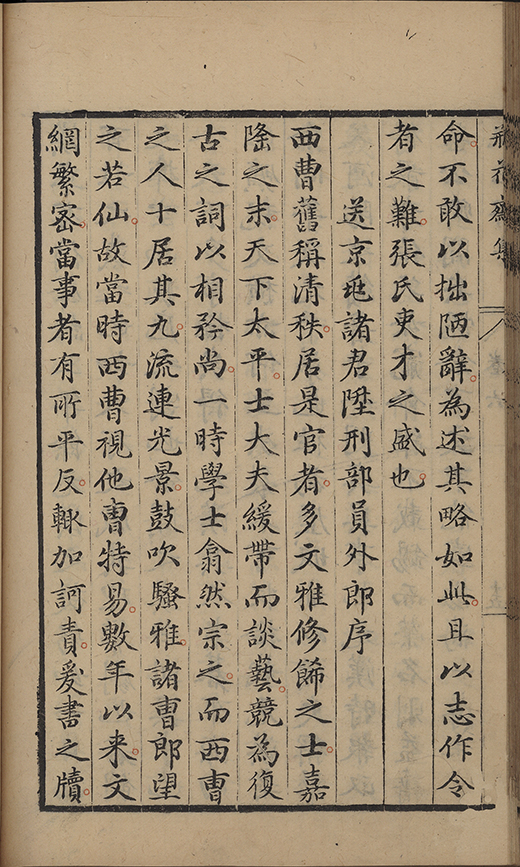 瓶花齋集
命不敢以拙陋辭為述其略如此且以志作令
者之難張氏吏才之盛也
送京兆諸君陞刑部員外郎序
西曹舊稱清秩居是官者多文雅修飾之士嘉
隆之末天下太平士大夫緩帶而談藝競為復
古之詞以相矜尚一時學士翕然宗之而西曹
之人十居其九流連光景鼓吹騷雅諸曹郎望
之若仙故當時西曹視他曹特易數年以來文
網繁密當事者有所平反輒加訶責爰書之牘